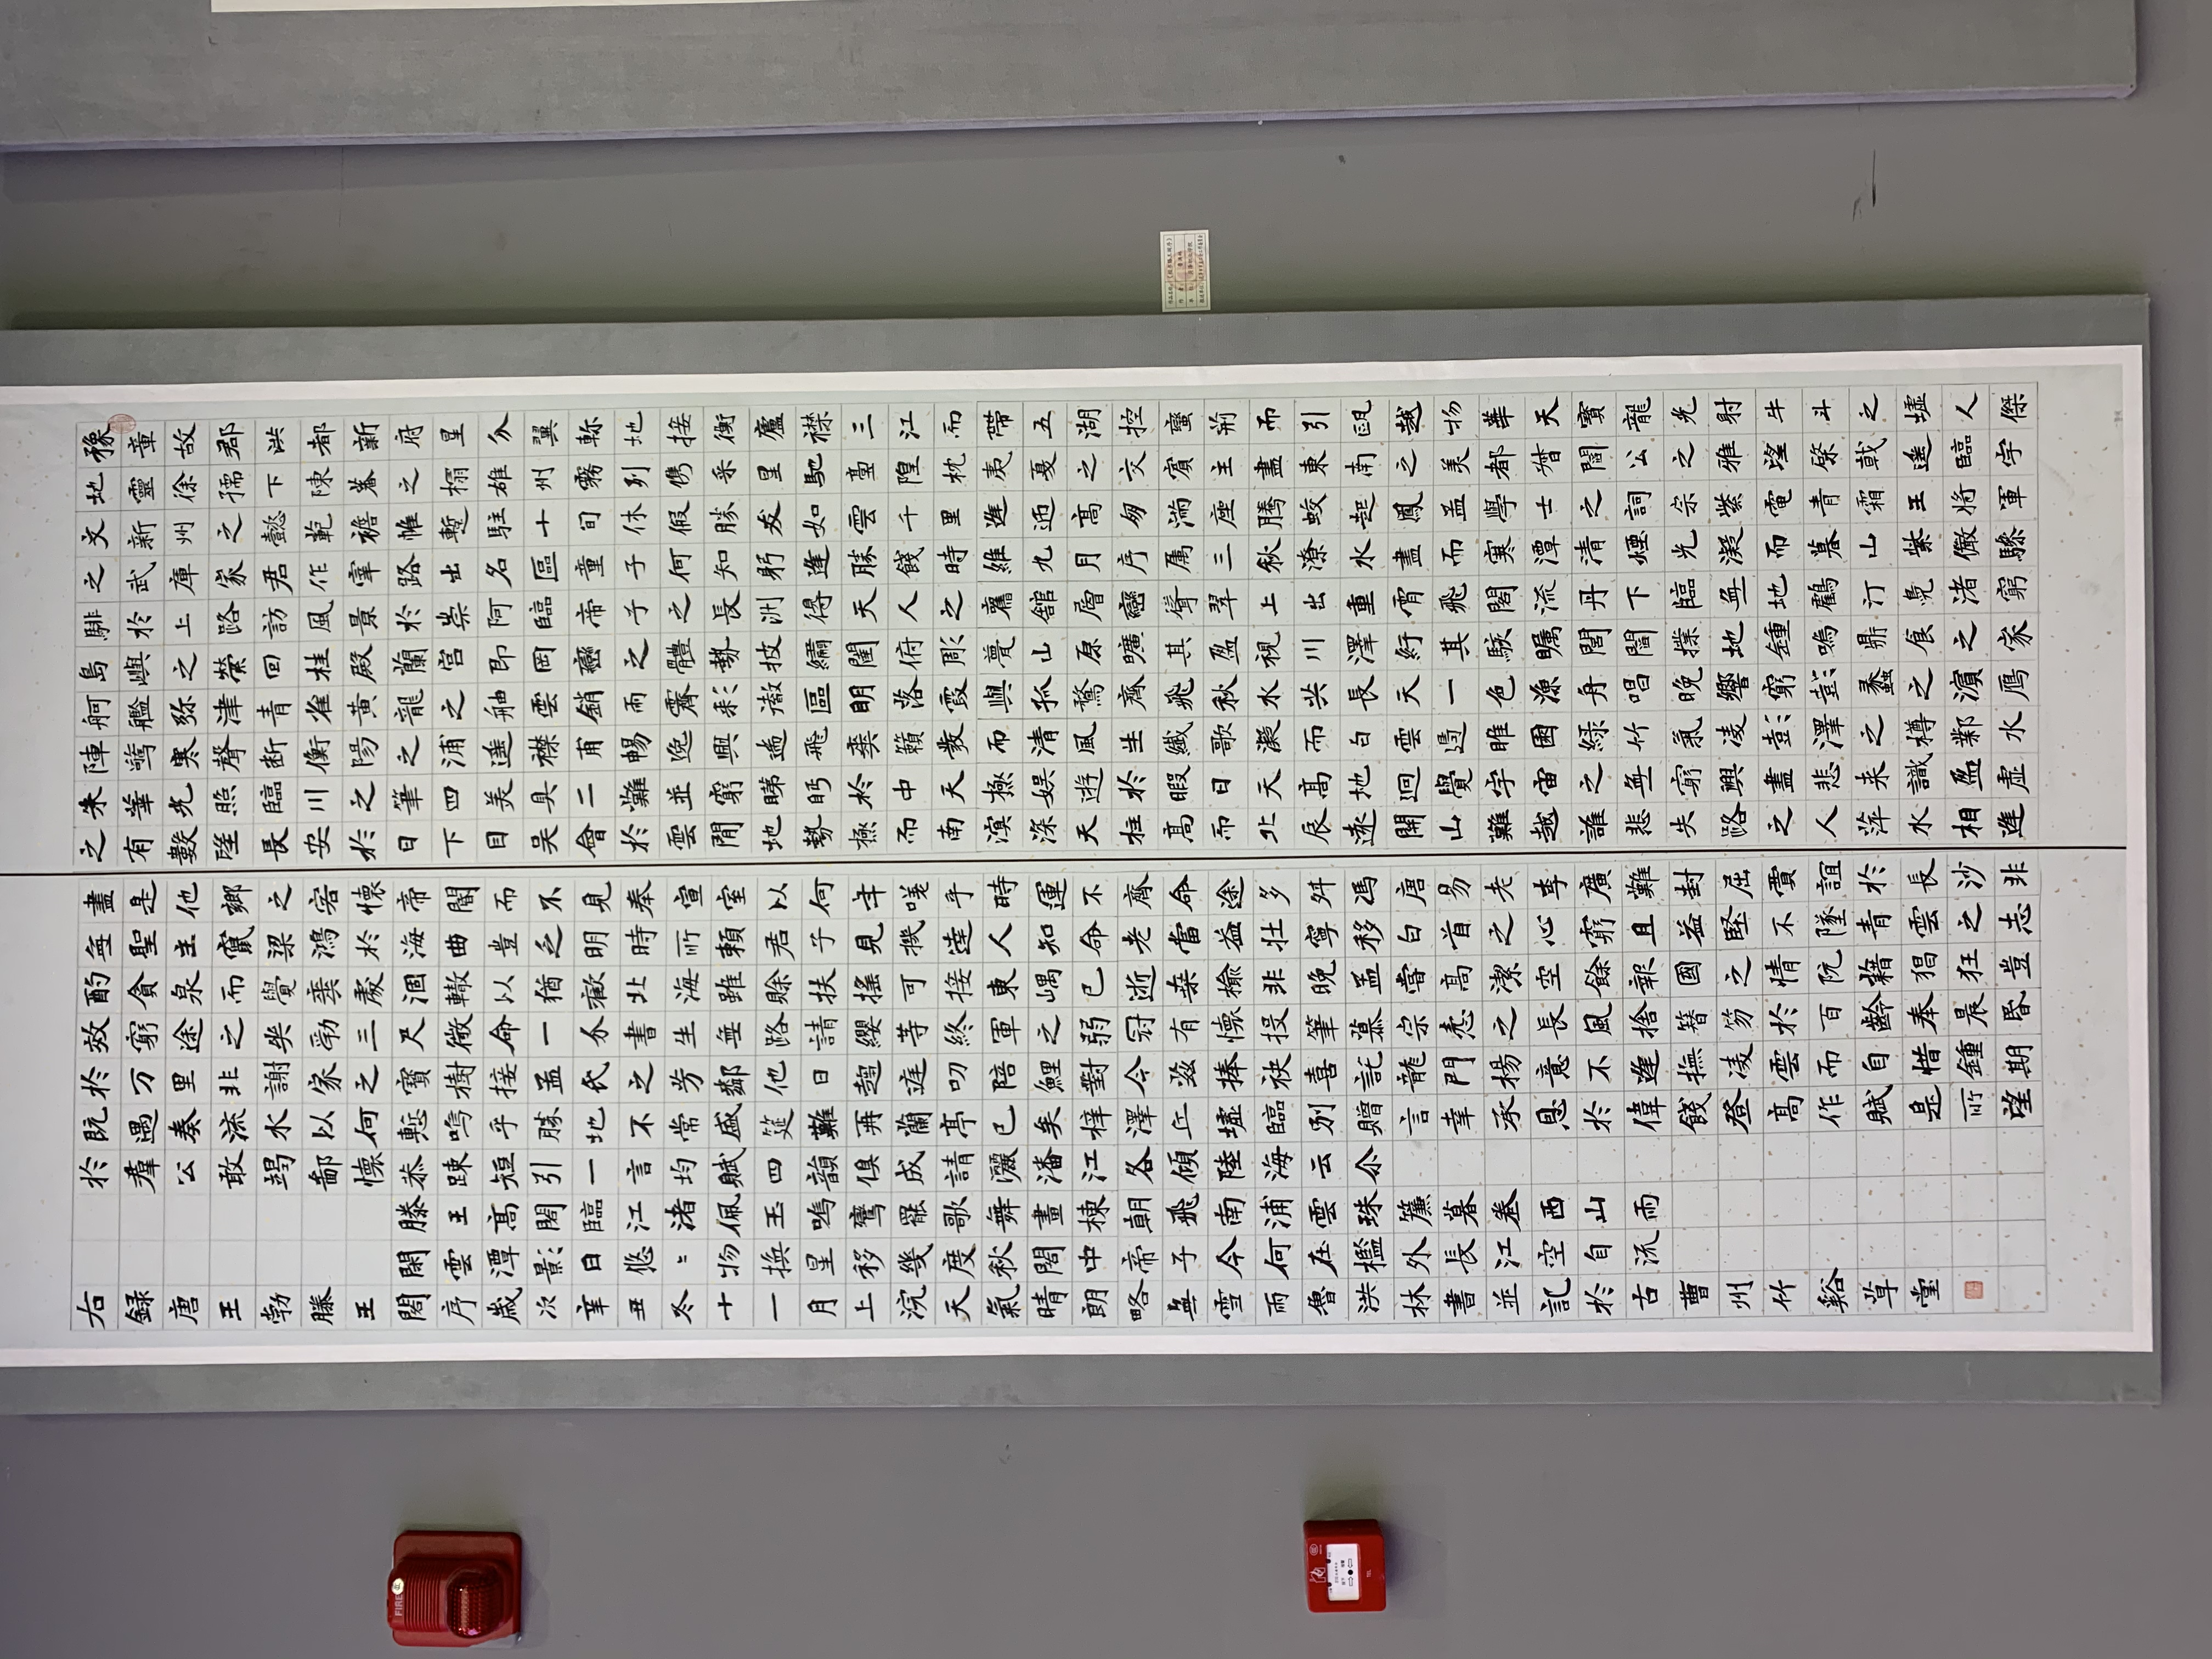 豫章故郡洪都新府星分翼軫地接衡廬襟三江而帶五湖控蠻荊而引甌越物華天寶龍光射牛斗之墟人傑
地靈徐孺下陳蕃之榻雄州霧列儁采星馳臺隍枕夷夏之交賓主盡東南之美都督閻公之雅望棨戟遙臨宇
文新州之懿範襜帷暫駐十旬休假勝友如雲千里逢迎高朋滿座騰蛟起鳳孟學士之詞宗紫電青霜王將軍
之武庫家君作宰路出名區童子何知躬逢勝餞時維九月序属三秋潦水盡而寒潭清煙光凝而暮山紫儼驂
騑於上路訪風景於崇阿臨帝子之長洲得天人之舊館層巒聳翠上出重霄飛閣流丹下臨無地鶴汀鳧渚窮
島嶼之縈回桂殿蘭宮即岡巒之體勢披繡闥俯彫甍山原曠其盈視川澤紆其駭矚閭閻撲地鍾鳴鼎食之家
舸艦弥津青雀黃龍之舳雲銷雨霽彩澈區明落霞與孤鶩齊飛秋水共長天一色漁舟唱晚響窮彭蠡之濱鴈
陣驚寒聲斷衡陽之浦遙襟甫暢逸興遄飛爽籟發而清風生纖歌凝而白雲過睢園綠竹氣凌彭澤之樽鄴水
朱華光照臨川之筆四美具二難並窮睇眄於中天極娛遊於暇日天高地迥覺宇宙之無窮興盡悲來識盈虛
之有數望長安於日下目吳會於雲間地勢極而南溟深天柱高而北辰遠關山難越誰悲失路之人萍水相逢
盡是他鄉之客懷帝閽而不見奉宣室以何年嗟乎時運不齊命途多舛馮唐易老李廣難封屈賈誼於長沙非
無聖主竄梁鴻於海曲豈乏明時所賴君子見機達人知命老當益壯寧移白首之心窮且益堅不墜青雲之志
酌貪泉而覺爽處涸轍以猶歡北海雖賒扶搖可接東嵎已逝桑榆非晚孟嘗高潔空餘報國之情阮籍猖狂豈
效窮途之哭勃三尺微命一介書生無路請纓等終軍之弱冠有懷投筆慕宗愨之長風捨簪笏於百齡奉晨昏
於万里非謝家之寶樹接孟氏之芳鄰他日趨庭叨陪鯉對今茲捧袂喜託龍門楊意不逢撫凌雲而自惜鍾期
既遇奏流水以何慙嗚乎勝地不常盛筵難再蘭亭已矣梓澤丘墟臨別贈言幸承恩於偉餞登高作賦是所望
於羣公敢竭鄙懷恭疎短引一言均賦四韻俱成請灑潘江各傾陸海云尒
滕王高閣臨江渚佩玉鳴鸞罷歌舞畫棟朝飛南浦雲珠簾暮卷西山雨
閑雲潭影日悠〻物換星移幾度秋閣中帝子今何在檻外長江空自流
右録唐王勃滕王閣序歲次辛丑冬十一月上浣天氣晴朗略無雪雨魯洪林書並記於古曹州竹谿草堂
FIRE